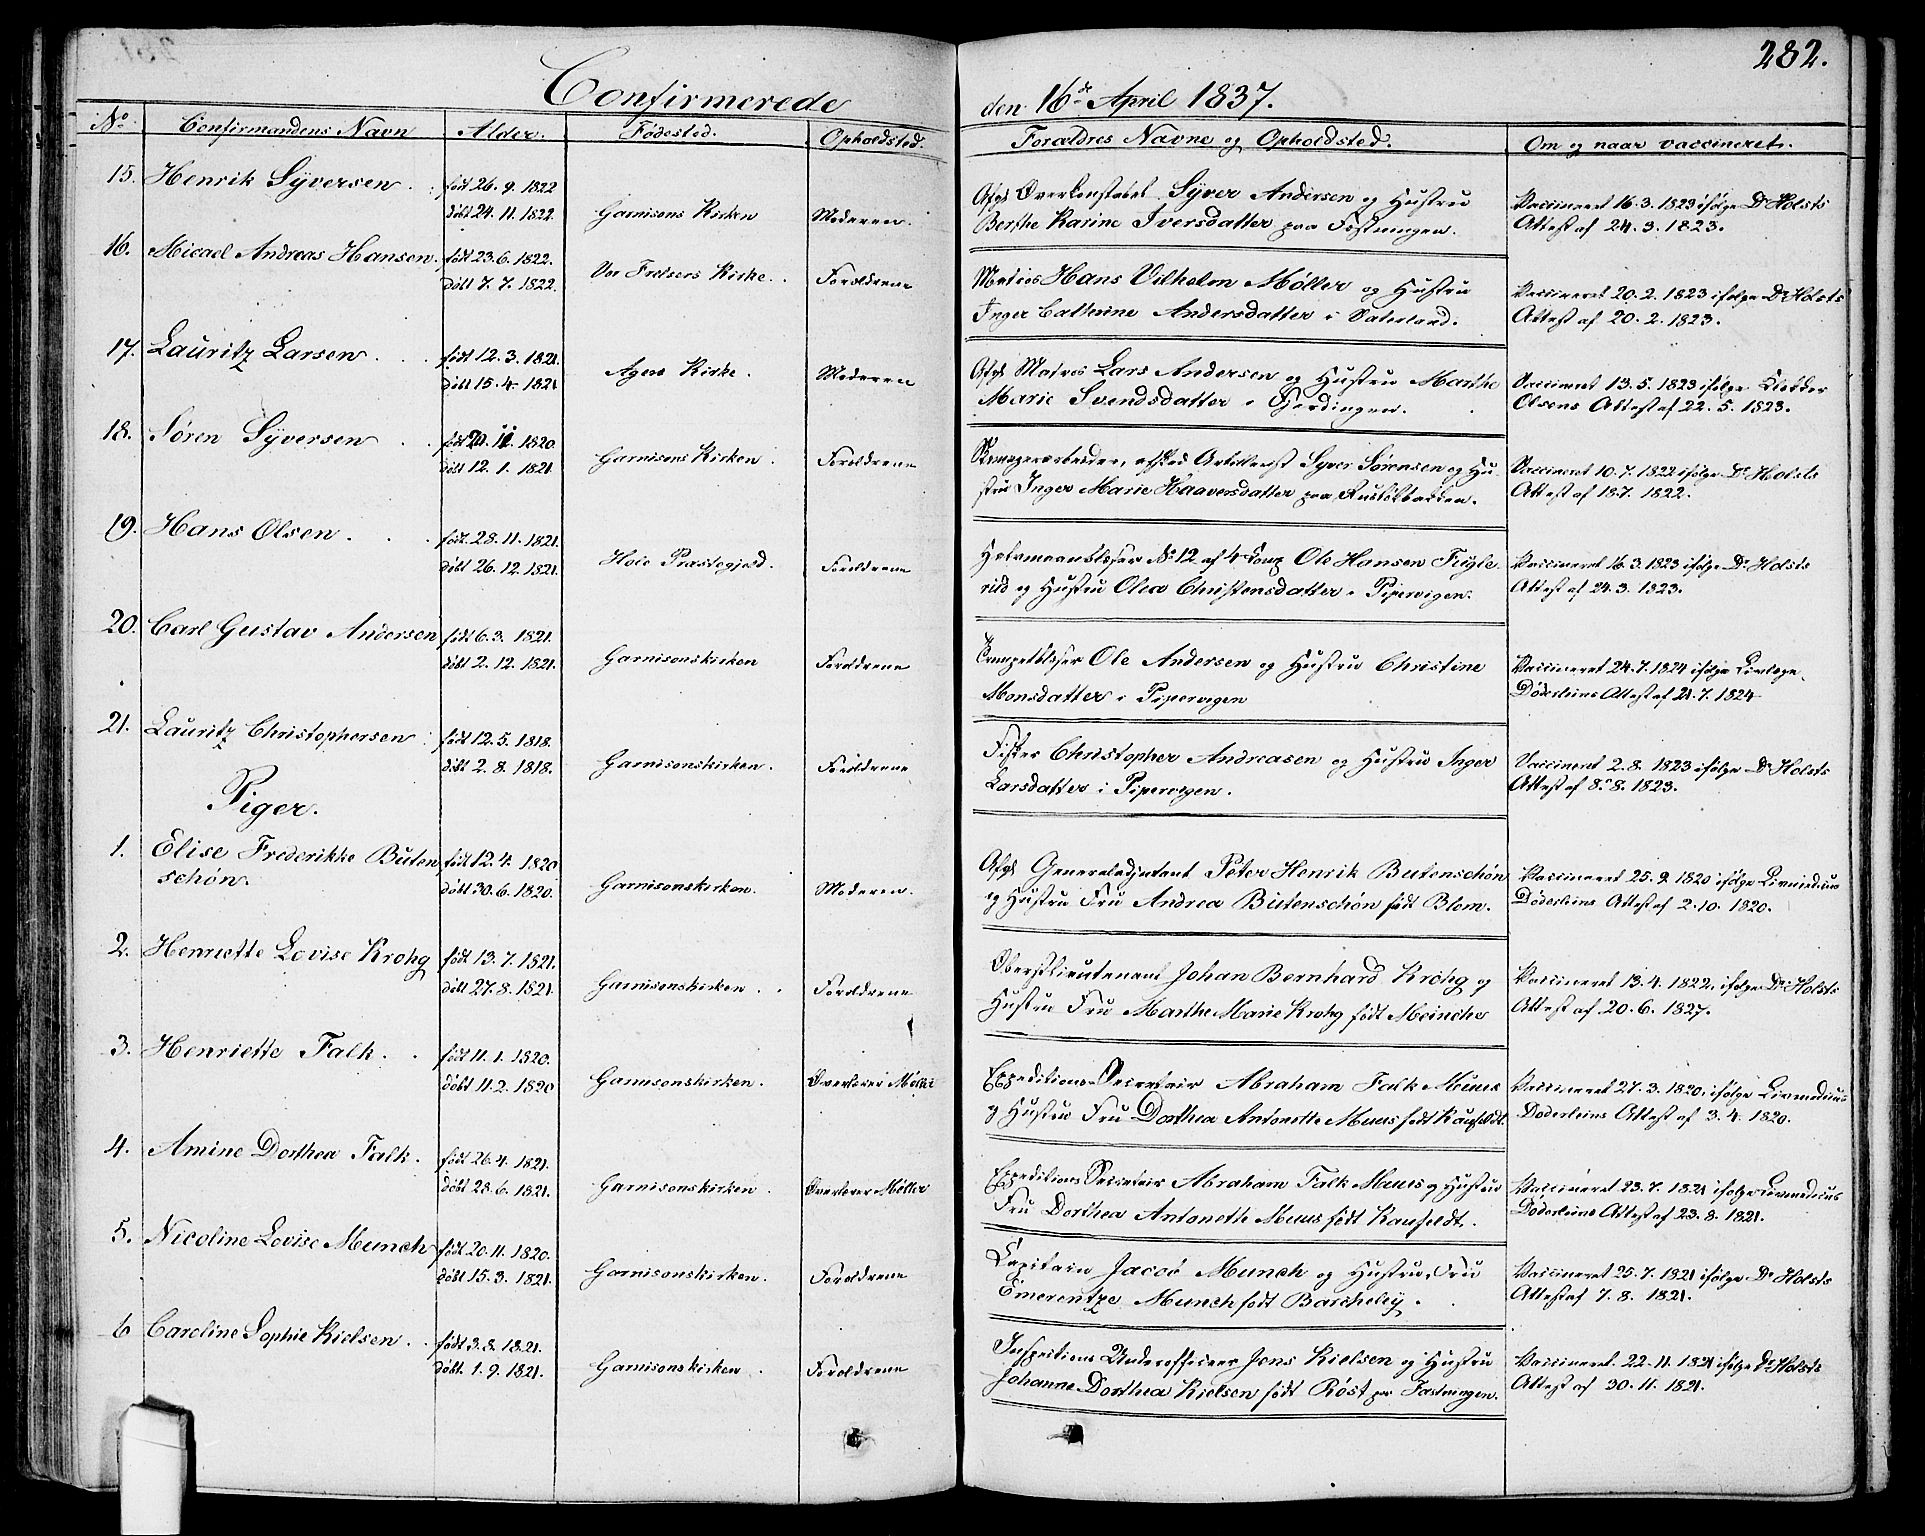 Confirmerede
den 16de April 1837.
282.
No. Confirmandens Navn Alder. Fødested. Opholdsted. Forældres Navne og Opholdsted. Om og naar vaccineret.
15. Henrik Syversen. født 26. 9. 1822
døbt 24. 11. 1822. Garnisons Kirken Moderen.
Afgl Overkonstabel Syver Andersen og Hustru
Berthe Karine Iversdatter paa Fæstningen.
Vaccineret 16. 3. 1823 ifølge Dr Holsts
Attest af 24. 3. 1823.
16. Micael Andreas Hansen. født 23. 6. 1822.
døbt 7. 7. 1822. Vor Frelsers Kirke. Forældrene
Matros Hans Vilhelm Møller og Hustru
Inger Cathrine Andersdatter i Vaterland.
Vaccineret 20. 2. 1823 ifølge Dr Holsts
Attest af 20. 2. 1823.
17. Lauritz Larsen. født 12. 3. 1821.
døbt 15. 4. 1821 Agers Kirke. Moderen
Afgl Matros Lars Andersen og Hustru Marthe
Marie Svendsdatter i Fjerdingen.
Vaccineret 13. 5. 1823 ifølge Klokker
Olsens Attest af 22. 5. 1823.
18. Søren Syversen født 20. 11. 1820.
døbt 12. 1. 1821 Garnisons Kirken. Forældrene
afsked Artillerist Syver Sørensen og Hu-
stru Inger Marie Haaversdatter paa
Vaccineret 10. 7. 1822 ifølge Dr Holsts
Attest af 18 7. 1822.
19. Hans Olsen. født. 28. 11. 1821.
døbt 26. 12. 1821. Hole Præstegjeld. Forældrene
No 12 af 4 Comp Ole Hansen Fugle-
rud og Hustru Olea Christensdatter i Pipervigen.
Vaccineret 16. 3. 1823 ifølge Dr Holsts
Attest af 24. 3. 1823.
20. Carl Gustav Andersen født 6. 3. 1821.
døbt 2. 12. 1821. Garnisonskirken Forældrene
Trompetblæser Ole Andersen og Hustru Christine
Monsdatter i Pipervigen
Vaccineret 24. 7. 1824 ifølge Livlæge
Døderleins Attest af 24. 7. 1824
21. Lauritz Christophersen født 12. 5. 1818.
døbt 2. 8. 1818. Garnisonskirken. Forældrene
Fisker Christopher Andreasen og Hustru Inger
Larsdatter i Pipervigen.
Vaccineret 2. 8. 1823 ifølge Dr Holsts
Attest af 8. 8. 1823.
Piger.
1. Elise Frederikke Buten- født 12. 4. 1820
schøn. døbt 30. 6. 1820. Garnisonskirken. Moderen.
Afgl Generaladjutant Peter Henrik Butenschøn
og Hustru Fru Andrea Butenschøn født Blom.
Vaccineret 25. 9. 1820 ifølge Livmedicus
Døderleins Attest af 2. 10. 1820.
2. Henriette Lovise Krohg født 13. 7. 1821.
døbt 27. 8. 1821 Garnisonskirken. Forældrene
Oberstlieutenant Johan Bernhard Krohg og
Hustru Fru Marthe Marie Krohg født Meincke
Vaccineret 13. 4. 1822. ifølge Dr Holsts
Attest af 20. 6. 1827.
3. Henriette Falk. født 11. 1. 1820.
døbt 11. 2. 1820 Garnisonskirken. Overlærer Møller
Expeditions-Secretair Abraham Falk Muus
og Hustru Fru Dorthea Antonette Muus født Kaufeldt.
Vaccineret 27. 3. 1820. ifølge Livmedicus
Døderleins Attest af 3. 4. 1820.
4. Amine Dorthea Falk. født 26. 4. 1821.
døbt 28. 6. 1821. Garnisonskirken. Overlærer Møller
Expeditions Secretair Abraham Falk Muus og Hustru
Fru Dorthea Antonette Muus født Kaufeldt.
Vaccineret 23. 7. 1821 ifølge Livmedicus
Døderleins Attest af 23. 8. 1821.
5. Nicoline Lovise Munch født 20. 11. 1820.
døbt 15. 3. 1821 Garnisonskirken. Forældrene
Capitain Jacob Munch og Hustru, Fru
Emerentze Munch født Barcheley.
Vaccineret 25. 7. 1821 ifølge Dr Holsts
Attest af 7. 8. 1821.
6 Caroline Sophie Kielsen. født 3. 8. 1821.
døbt. 1. 9. 1821. Garnisonskirken Forældrene
Inspections Underofficeer Jens Kielsen og Hustru
Johanne Dorthea Kielsen født Røst paa Fæstningen.
Vaccineret. 22. 11. 1821 ifølge Dr Holsts
Attest af 30. 11. 1821.